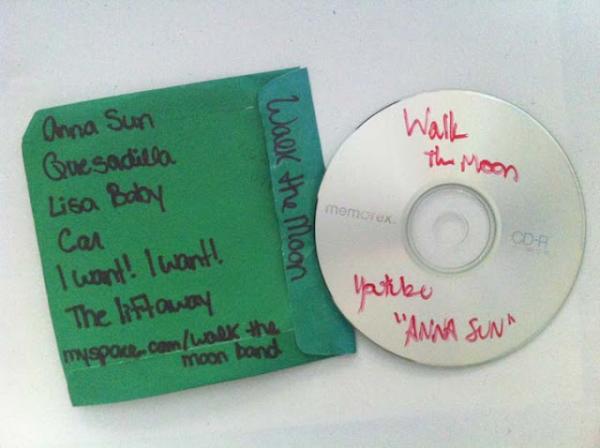 Anna Sun
Quesadilla
Lisa Baby
Car
I want! I want!
The liftaway
myspace.com/walk the
moon band
Walk the Moon
Walk
the Moon
memorex
CD-R
Youtube
"ANNA SUN"